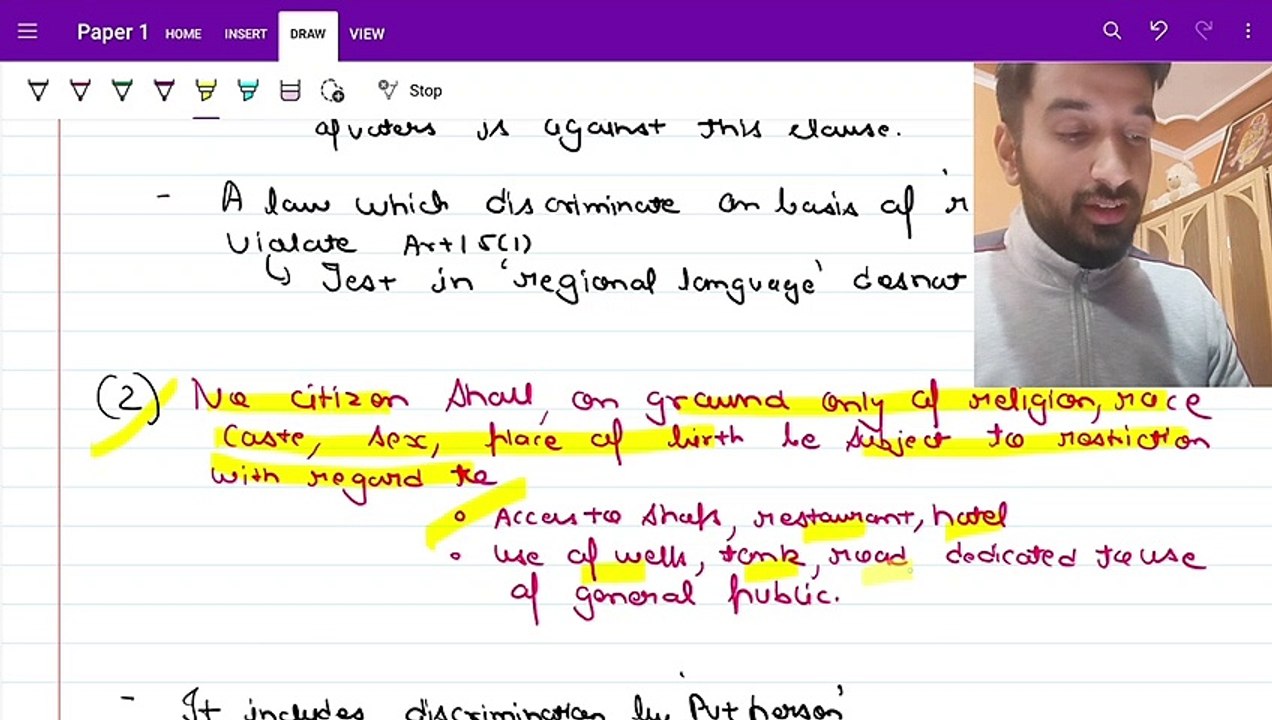 Paper 1 HOME INSERT DRAW VIEW
Stop
of voters is against this clause.
- A law which discriminate on basis of 'r
violate Art 15(1)
↳ Test in 'regional language' doesnot
(2) No citizen shall, on ground only of religion, race
Caste, sex, place of birth be subject to restiction
with regard to
• Access to shops, restaurant, hotel
• use of wells, tank, road dedicated to use
of general public.
- It includes discrimination by 'Pvt person'